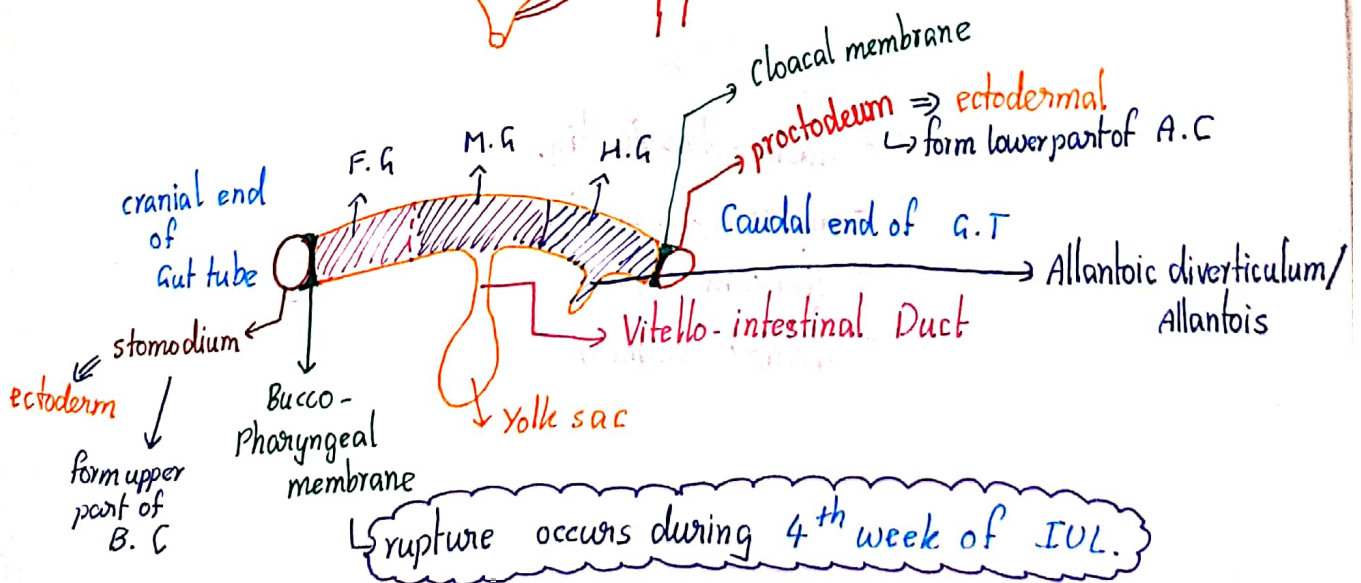 cloacal membrane
proctodeum ⇒ ectodermal
↳ form lower part of A.C
F.G
M.G
H.G
cranial end
of
Gut tube
Caudal end of G.T
Allantoic diverticulum/
Allantois
Vitello-intestinal Duct
stomodium
ectoderm
form upper
part of
B.C
Bucco-
Pharyngeal
membrane
Yolk sac
↳ rupture occurs during 4th week of IUL.